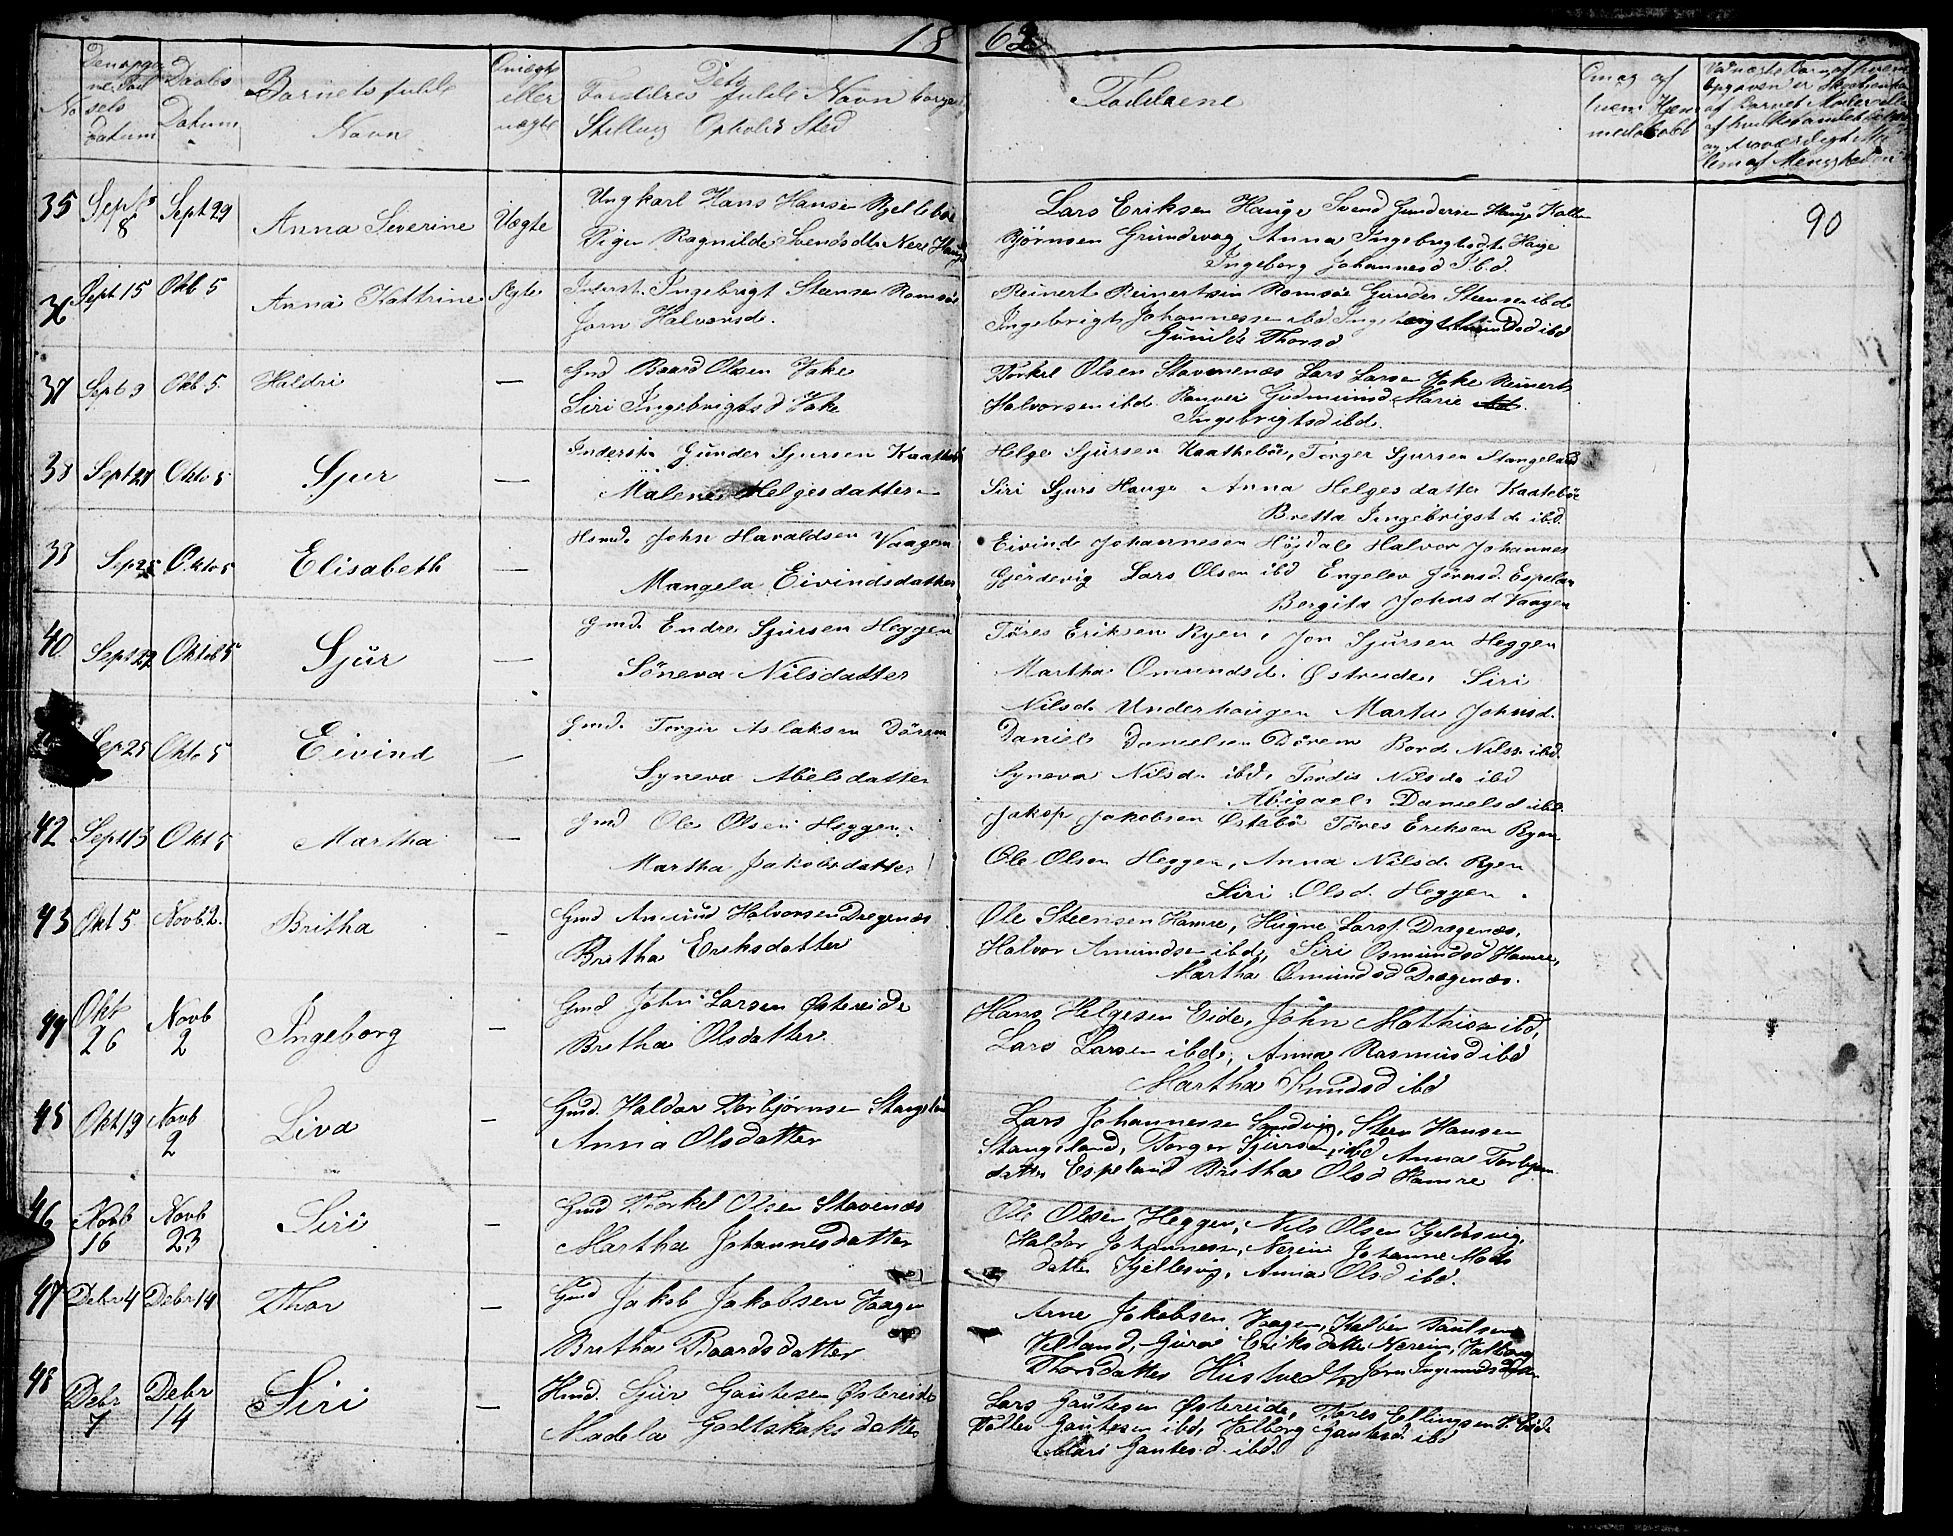 18 62
No
Datum
Daabs
Datum
Barnets fulde
Navn
eller
uægte
Forældres fulde Navn
Stilling Opholds Sted
Faddrene
35 Sept 8 Sept 29 Anna Severine Uægte Ungkarl Hans Hansen
Pigen Ragnilde Svendsdtr Nere Hauge
Lars Eriksen Hauge Svend Gundersen Hauge
Bjørnsen Grundevag, Anna Ingebrigtsdt Hauge
Ingeborg Johannesd Ibd.
90
36 Sept 15 Okb 5 Anna Kattrine Ægte Inderst. Ingebrigt Steensen Romsøe
Jorn Halvorsd.
Reinert Reinertsen Romsøe Gunder Steensen ibd
Ingebrigt Johannessen ibd
Gunilde Thorsd
37 Sept 9 Okb 5 Haldri — Gmd Baard Olsen Vake
Siri Ingebrigtsd Vake
Torkel Olsen Stavenæs Lars Larsen Vake Reinert
Halvorsen ibd. Ranvei Gudmunsd, Marie
Ingebrigtsd ibd.
38 Sept 21 Okto 5 Sjur — Inderst. Gunder Sjursen
Malene Helgesdatter
Helge Sjursen Kaatheböe, Torger Sjursen Stangeland
Siri Sjurs Hauge Anna Helges datter Kaateböe
Bretta Ingebrigst d. ibd.
39 Sep 25 Okto 5 Elisabeth — Hsmd. John Haraldsen Vaagen
Mangela Eivindsdatter
Eivind Johannesen Höjdale Halvor Johannes
Gjerdevig Lars Olsen ibd Engelev Jörnsd. Espelan
Bergita Johnsd Vaagen
40 Sept 27 Oktob 5 Sjur — Gmd. Endre Sjursen Heggen
Söneva Nilsdatter
Töres Eriksen Ryen, Jon Sjursen Heggen
Martha Omundsd. Østreiden Siri
Nilsd. Underhaugen Marta Johnsd.
Sep 25 Okto 5 Eivind — Gmd. Torgir Aslaksen Dörem
Syneva Abelsdatter
Daniel Danielsen Dörem Bord Nilsn ibd.
Syneva Nilsd. ibd, Tordis Nilsd. ibd
Abigael Danielsd ibd
42 Sept 13 Okt 5 Martha — Gmd Ole Olsen Heggen
Martha Jakobsdatter
Jakop Jakobsen Østebö Töres Eriksen Ryen
Ole Olsen Heggen, Anna Nilsd. Ryen
Siri Olsd. Heggen.
43 Okt 5 Novb 2. Britha — Gmd Amund Halvorsen Dragenæs
Britha Eriksdatter
Ole Steensen Hamre, Hugne Larsf. Dragenæs,
Halvor Amundsen ibd, Siri Osmundsd Hamre,
Martha Omundsd Dragenæs.
44 Okt 26 Novb 2 Ingeborg — Gmd John Larsen Østereide
Britha Olsdatter.
Hans Helgesen Eide, John Mathisen ibd,
Lars Larsen ibd, Anna Rasmusd ibd
Martha Knudsd ibd
45 Okt 19 Novb 2 Liva — Gmd. Haldor Torbjørnsen Stangeland
Anna Olsdatter
Lars Johannessen Sandvig, Steen Hansen
Stangeland, Torger Sjursen, ibd Anna Torbjørn
datter Espeland Britha Olsd Hamre
46 Novb 16 Novb 23 Siri — Gmd Thorkel Olsen Stavenæs
Martha Johannesdatter
Ole Olsen Heggen, Nils Olsen Kjeldsvig,
Haldor Johannessen, Nereim Johanne Mads
datter Kjellesvig, Anna Olsd ibd.
47 Debr 4 Debr 14 Thor — Gmd Jakob Jakobsen Vaagen
Britha Baardsdatter.
Arne Jakobsen Vaagen, Halvor Paulsen
Velland, Guroe Eriksdatter Nereim, Valborg
Thorsdatter Hustvedt, Jorn Ingemundsdatter
48 Debr 7 Debr 14 Siri — Hmd. Sjur Gautesen Østereide
Madela Godtskalksdatter
Lars Gautesen Østereide, Tores Ellingsen
Tollev Gautesen ibd, Valborg Gautesd. ibd
Mari Gautesd. ibd.